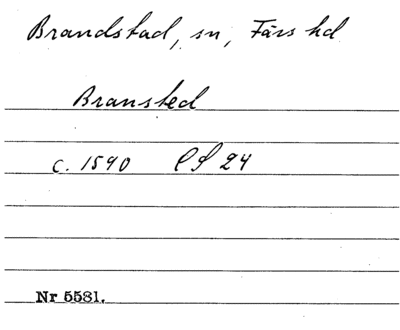 Brandstad, sn, Färs hd
Bransted
c. 1590 PS 24
Nr 5581.